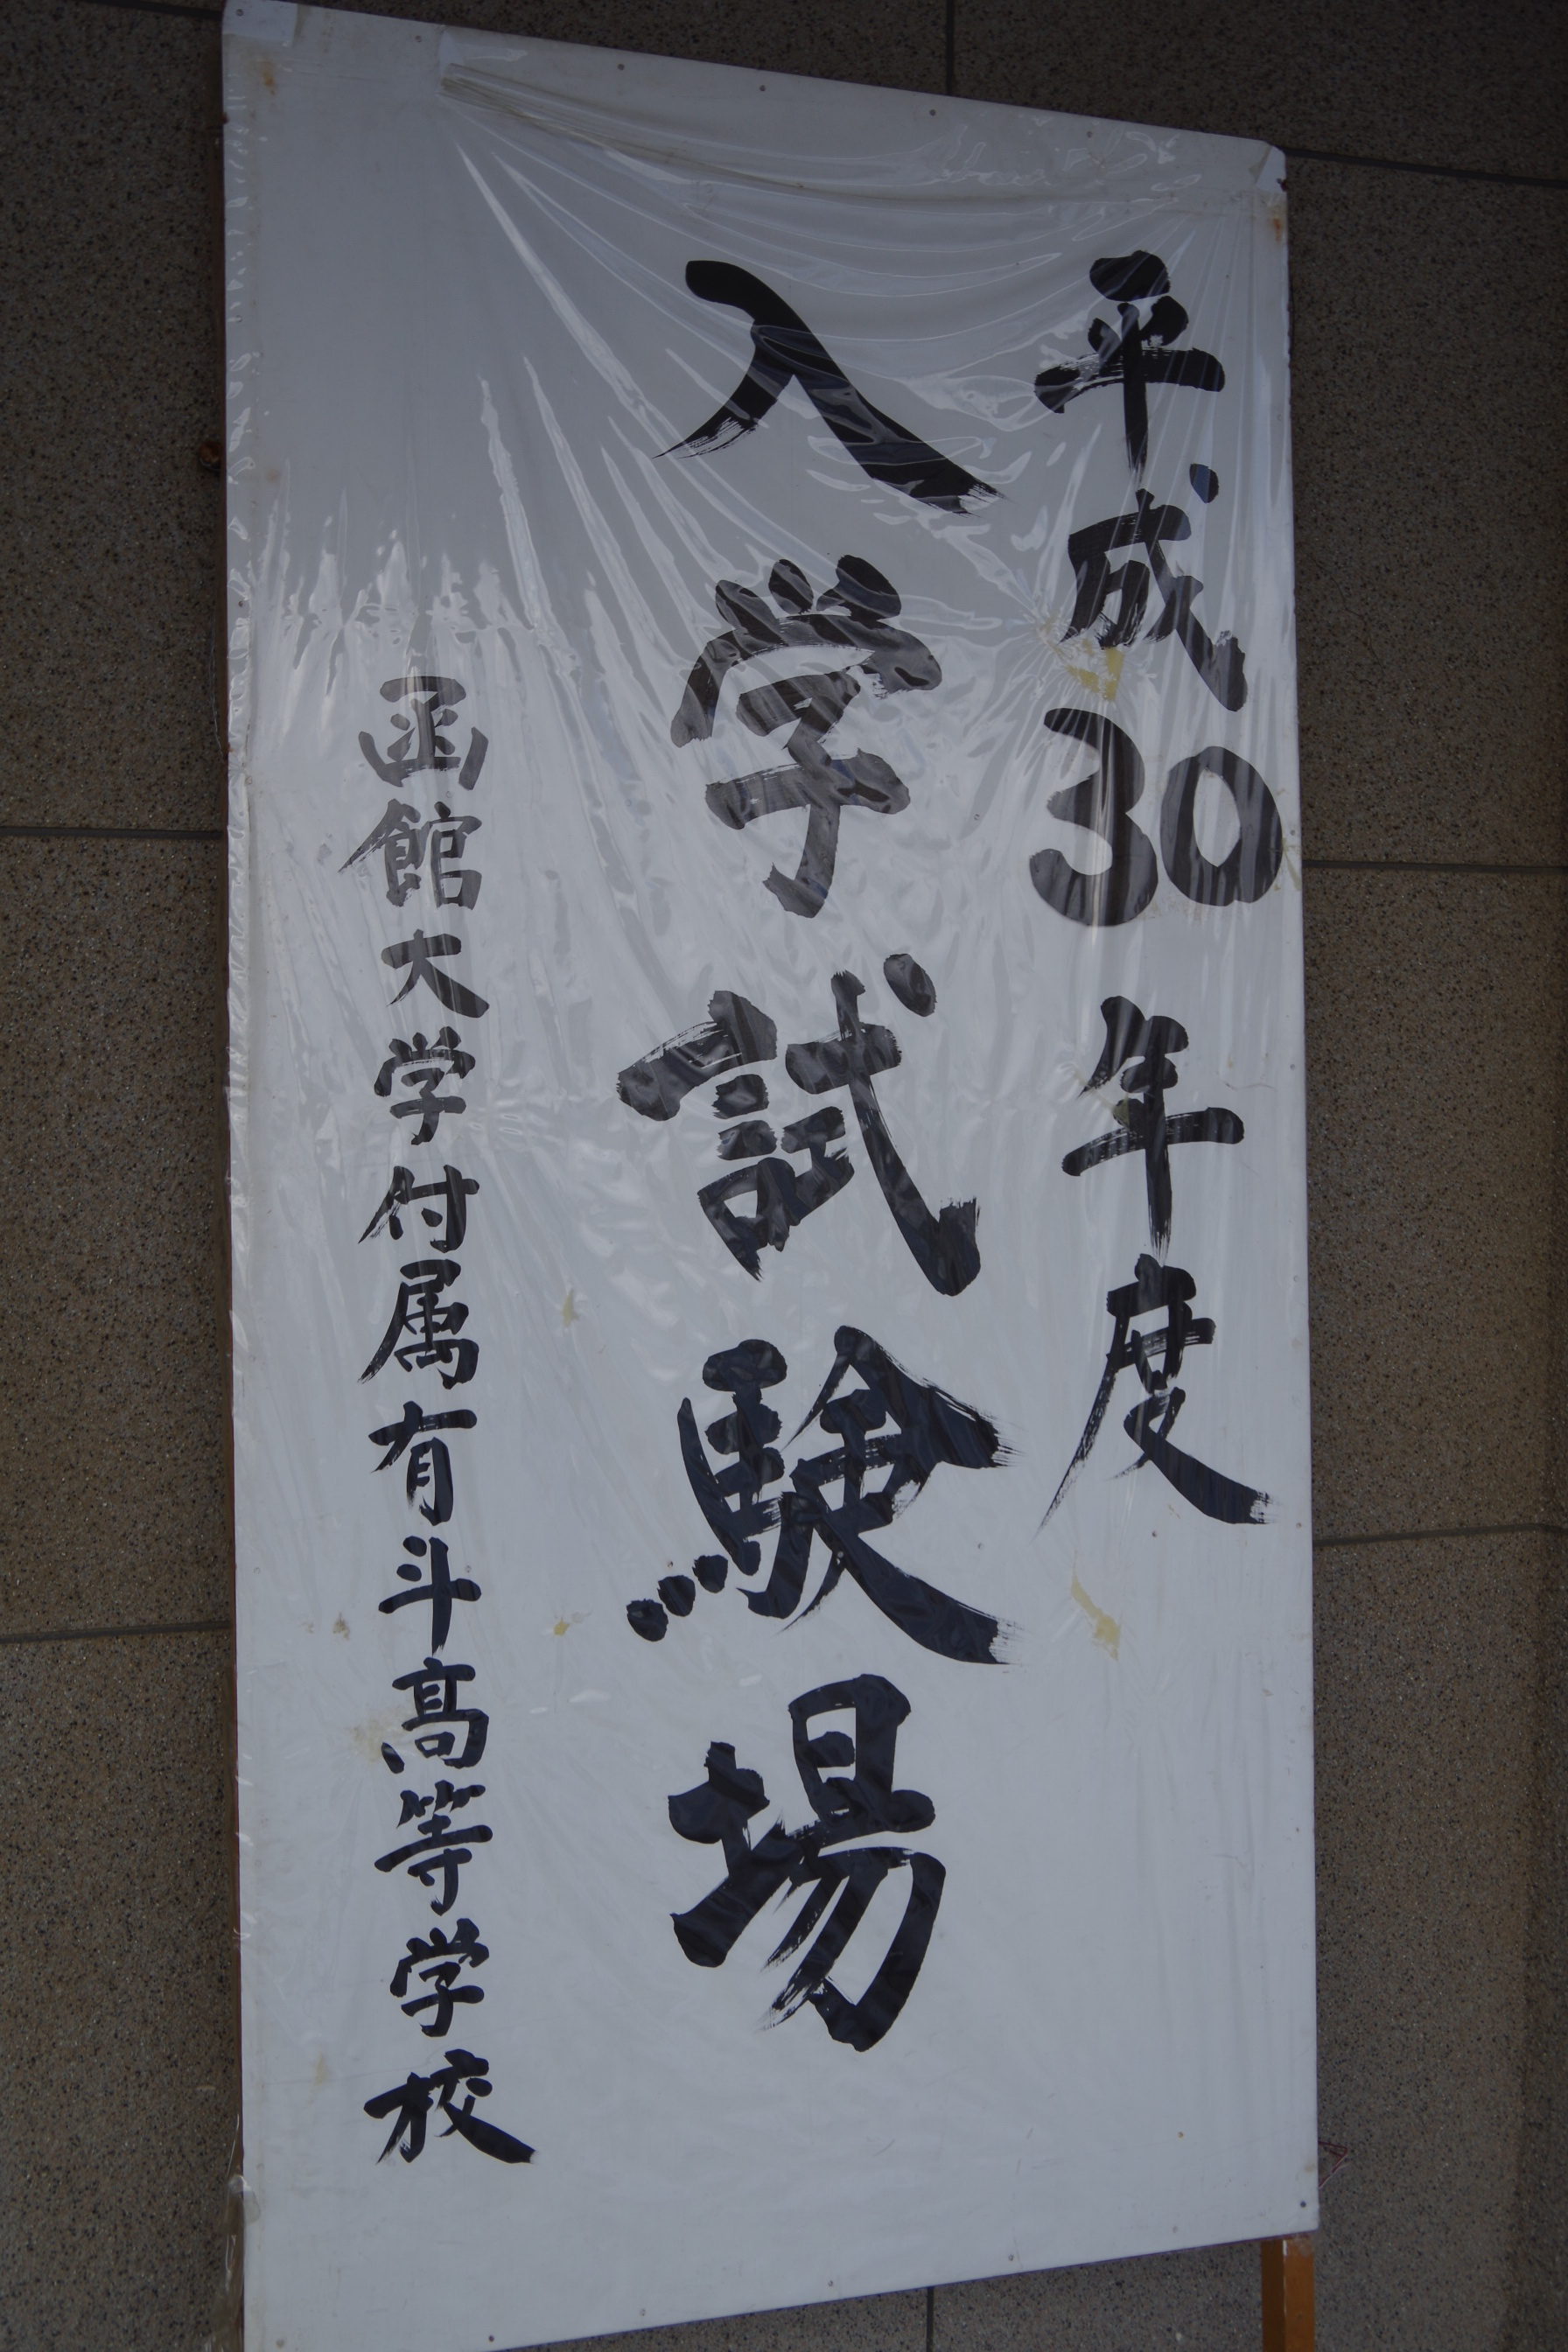 平成30年度
入学試験場
函館大学付属有斗高等学校